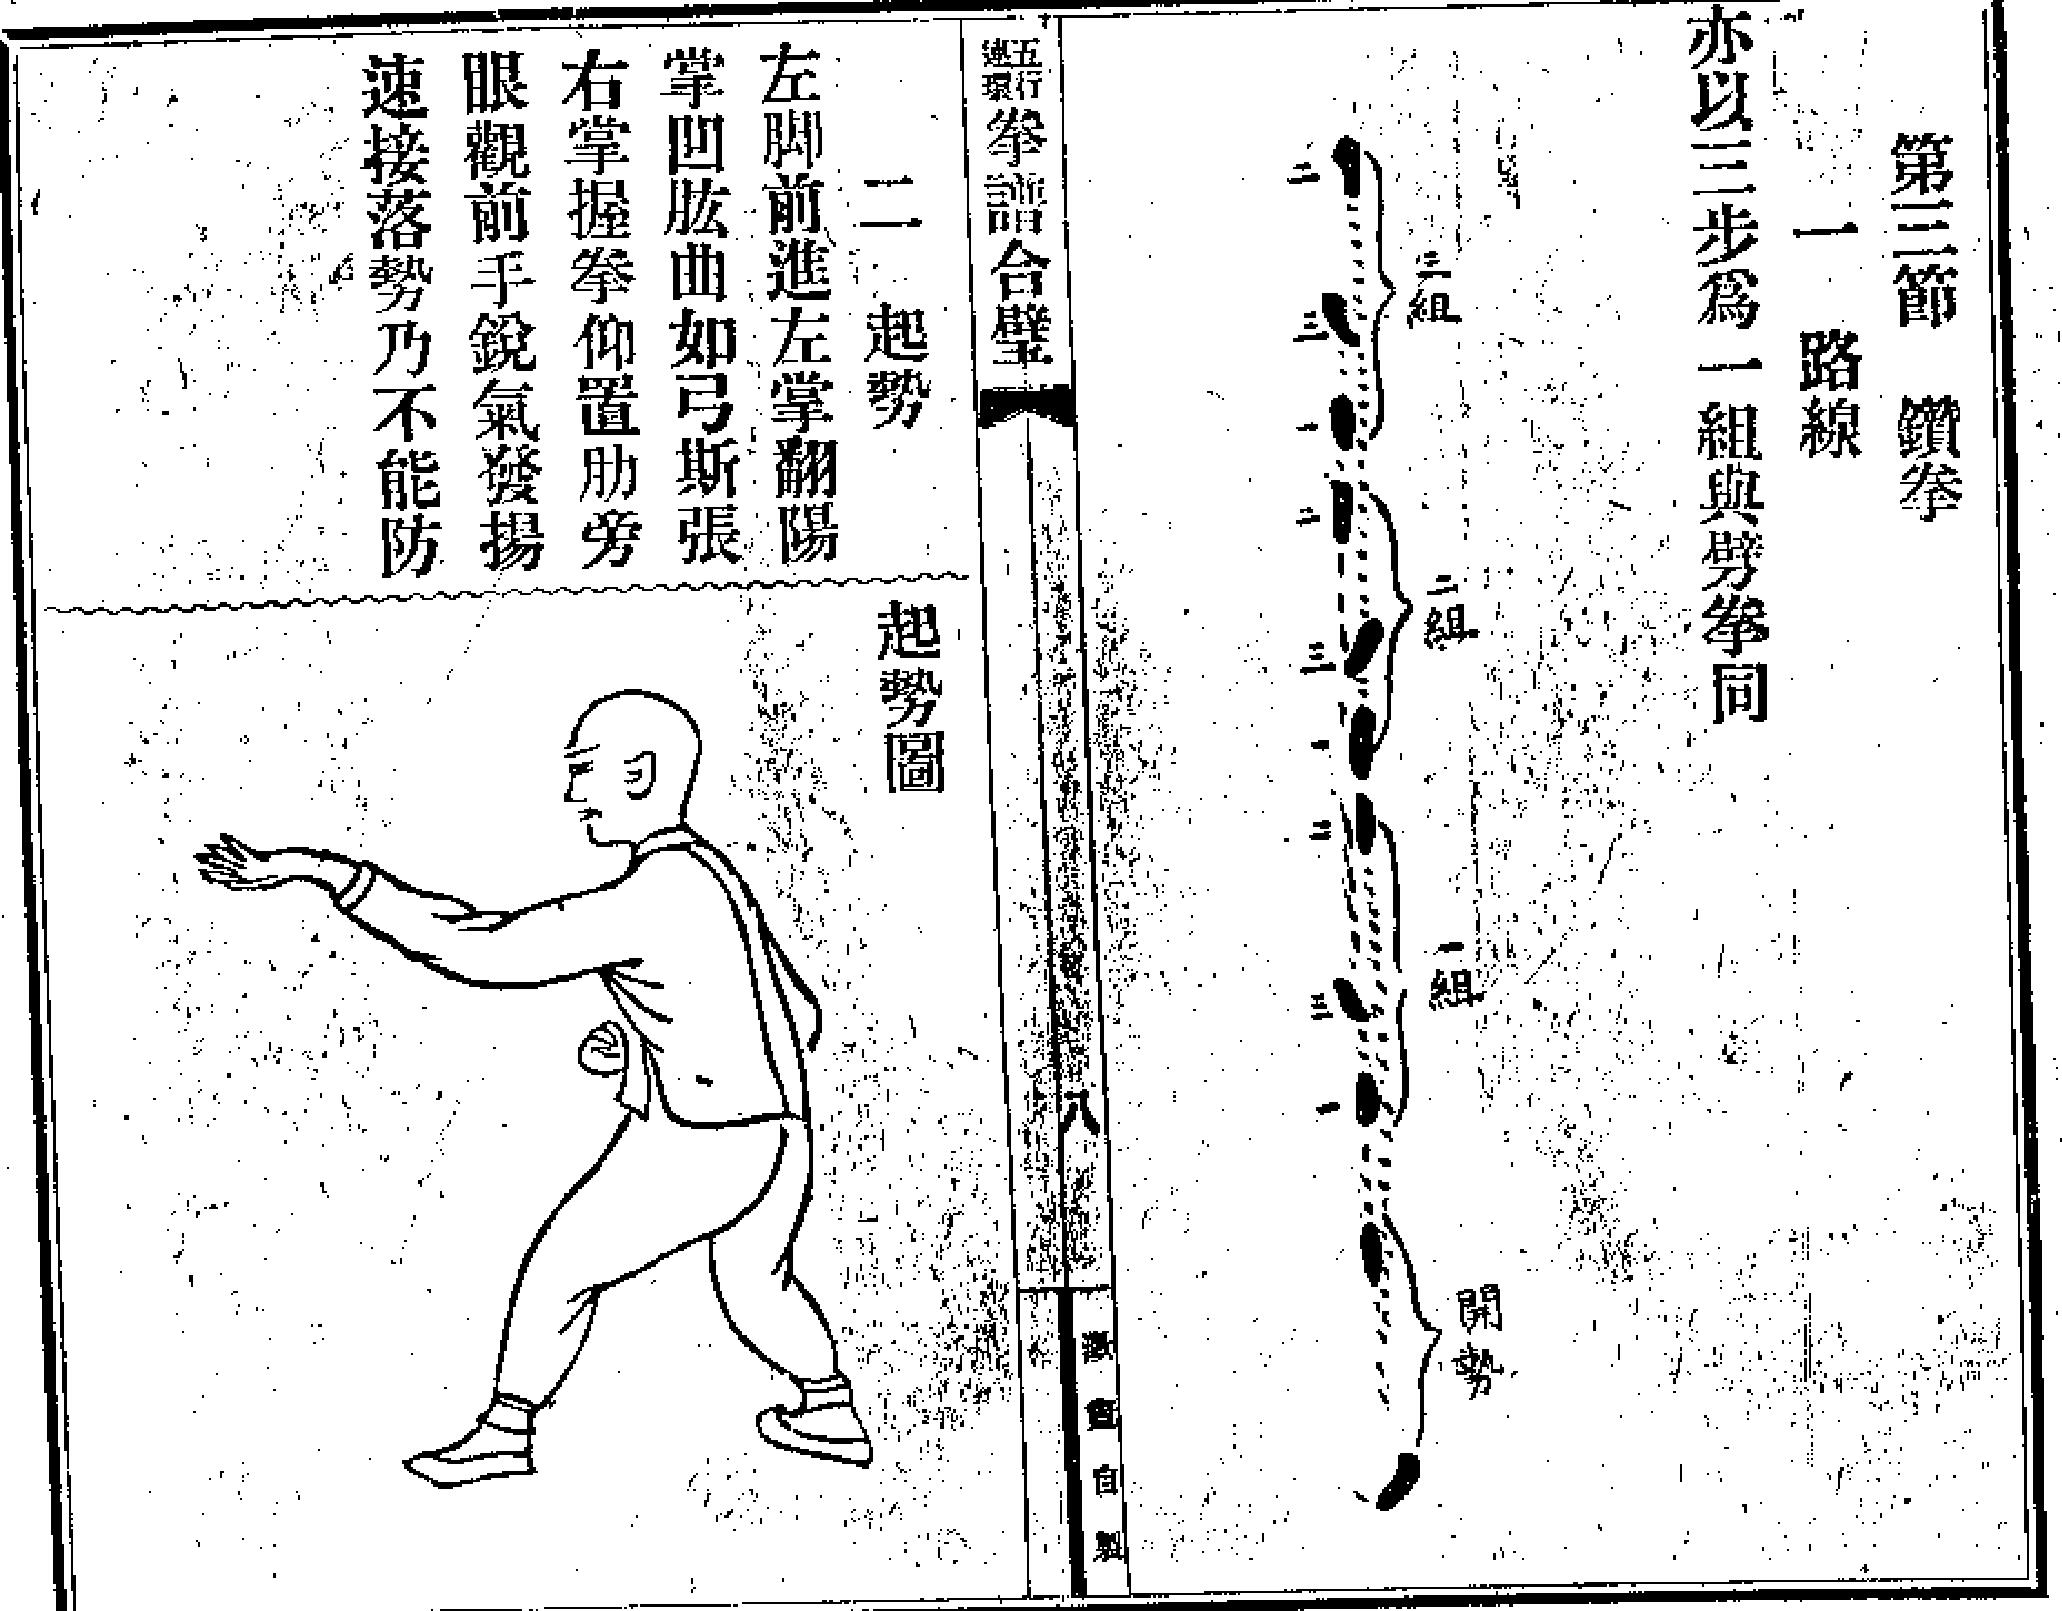 第三節　鑽拳
一　路線
亦以三步爲一組與劈拳同
三組
二
三
一
二組
二
三
一
一組
二
三
一
開勢
五行連環拳譜合璧
八
會自製
二　起勢
左脚前進左掌翻陽
掌凹肱曲如弓斯張
右掌握拳仰置肋旁
眼觀前手銳氣發揚
速接落勢乃不能防
起勢圖